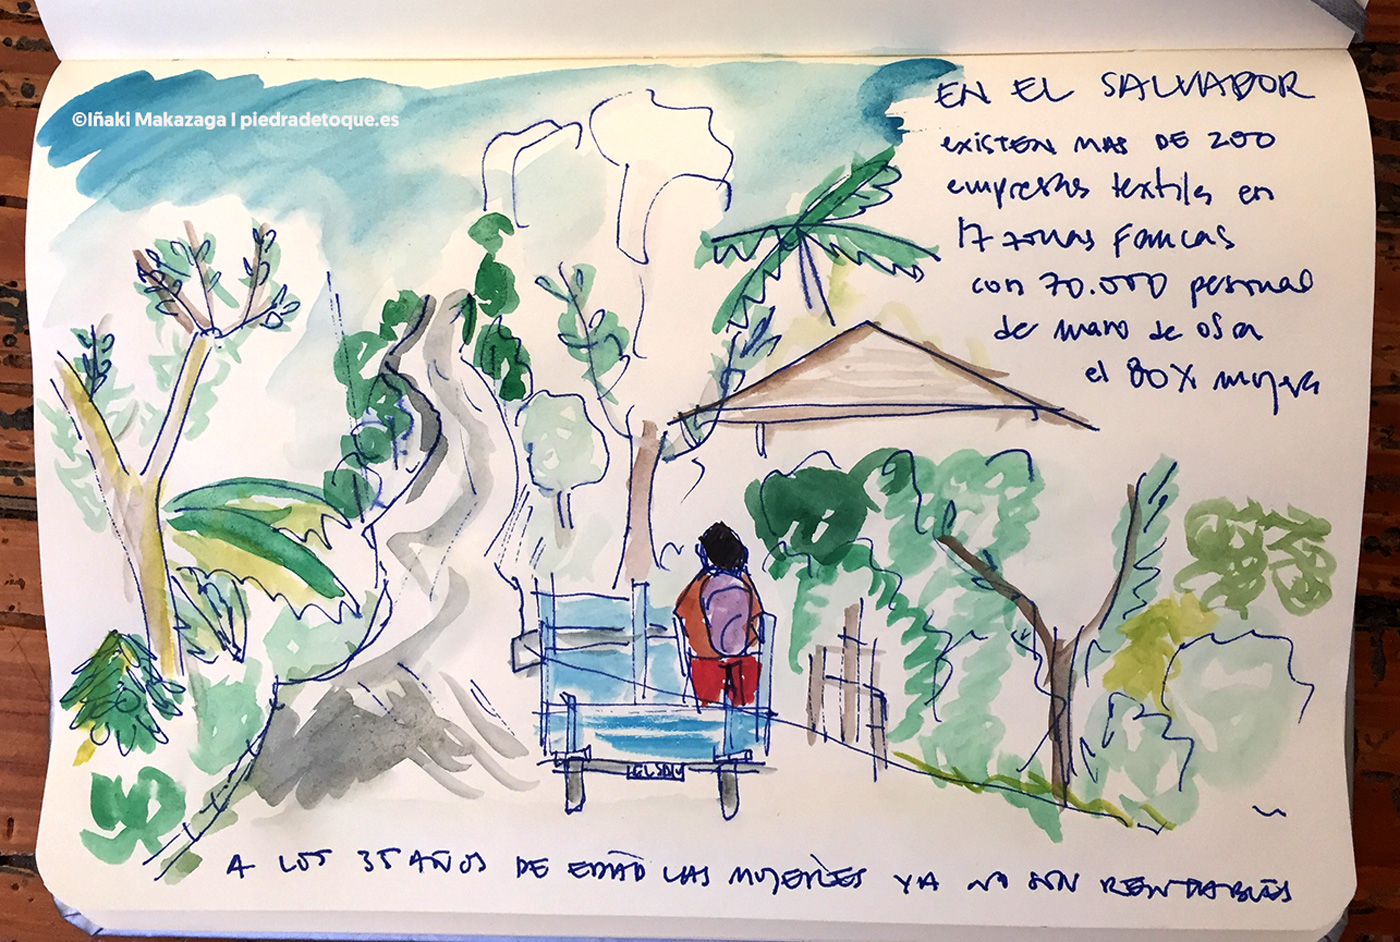 ©Iñaki Makazaga | piedradetoque.es
EN EL SALVADOR
existen mas de 200
empresas textiles en
17 zonas Francas
con 70.000 personas
de mano de obra
el 80% mujeres
A LOS 35 AÑOS DE EDAD LAS MUJERES YA NO SON RENTABLES